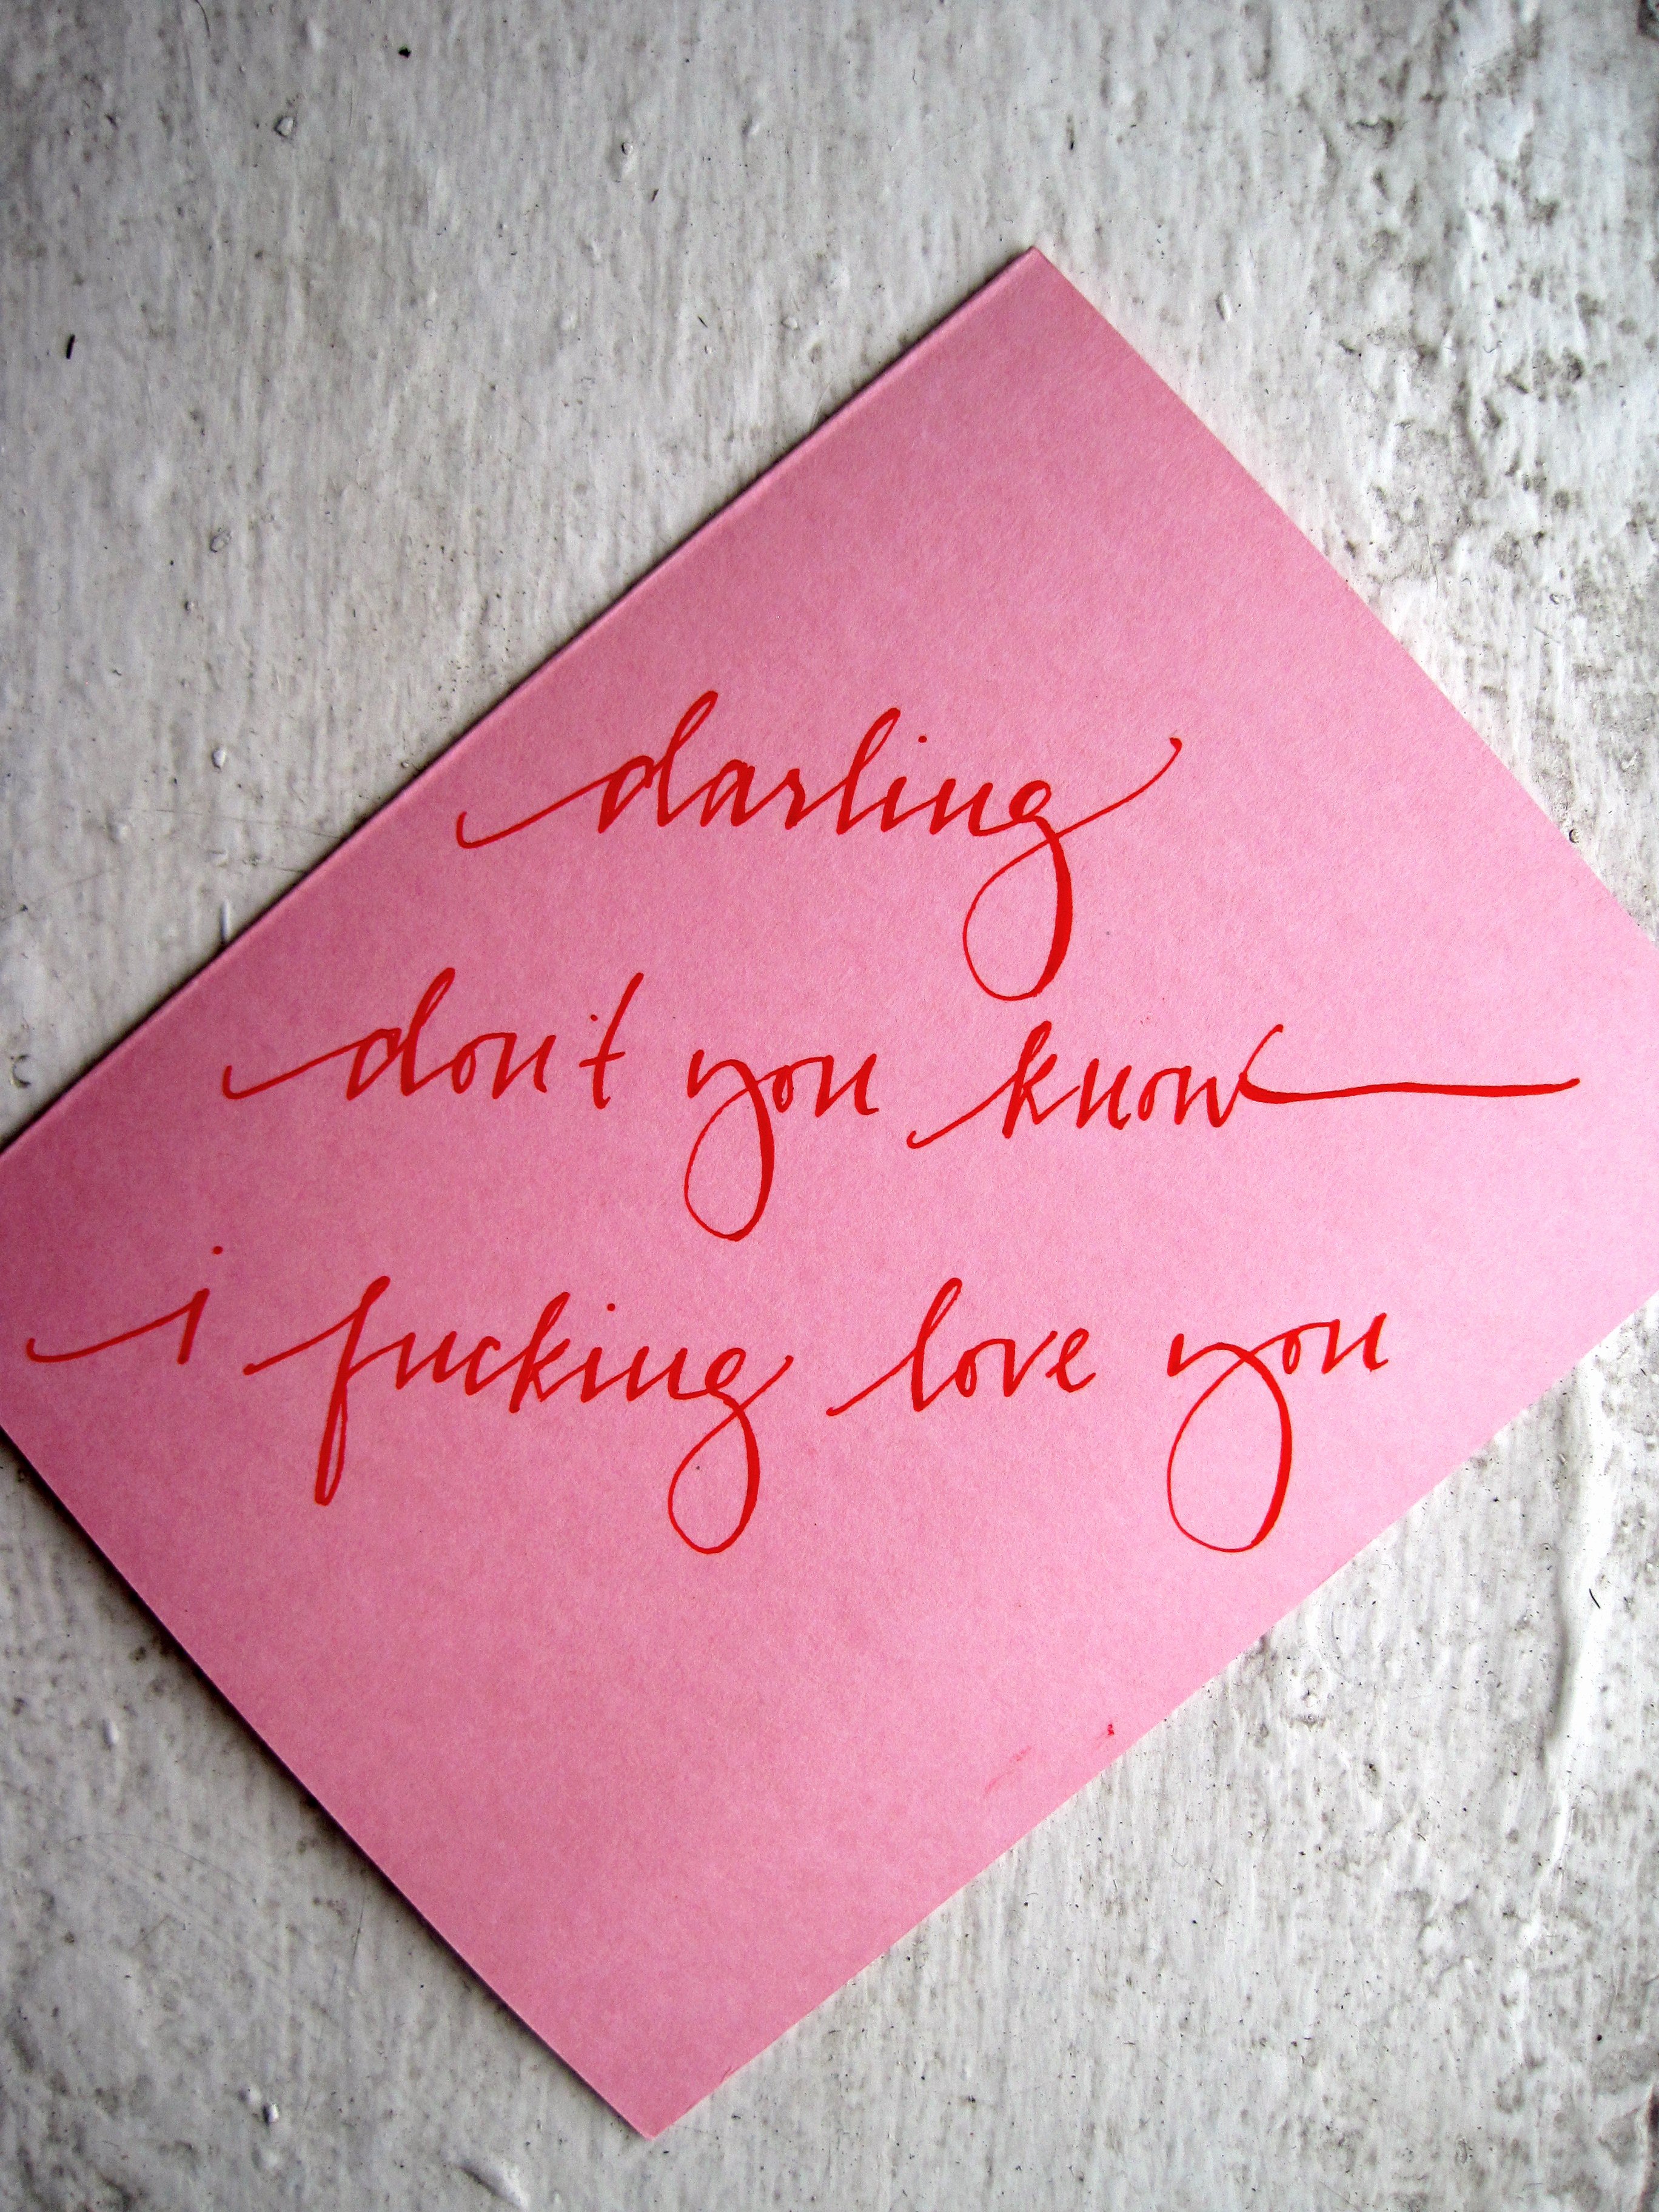 darling
don't you know
i fucking love you